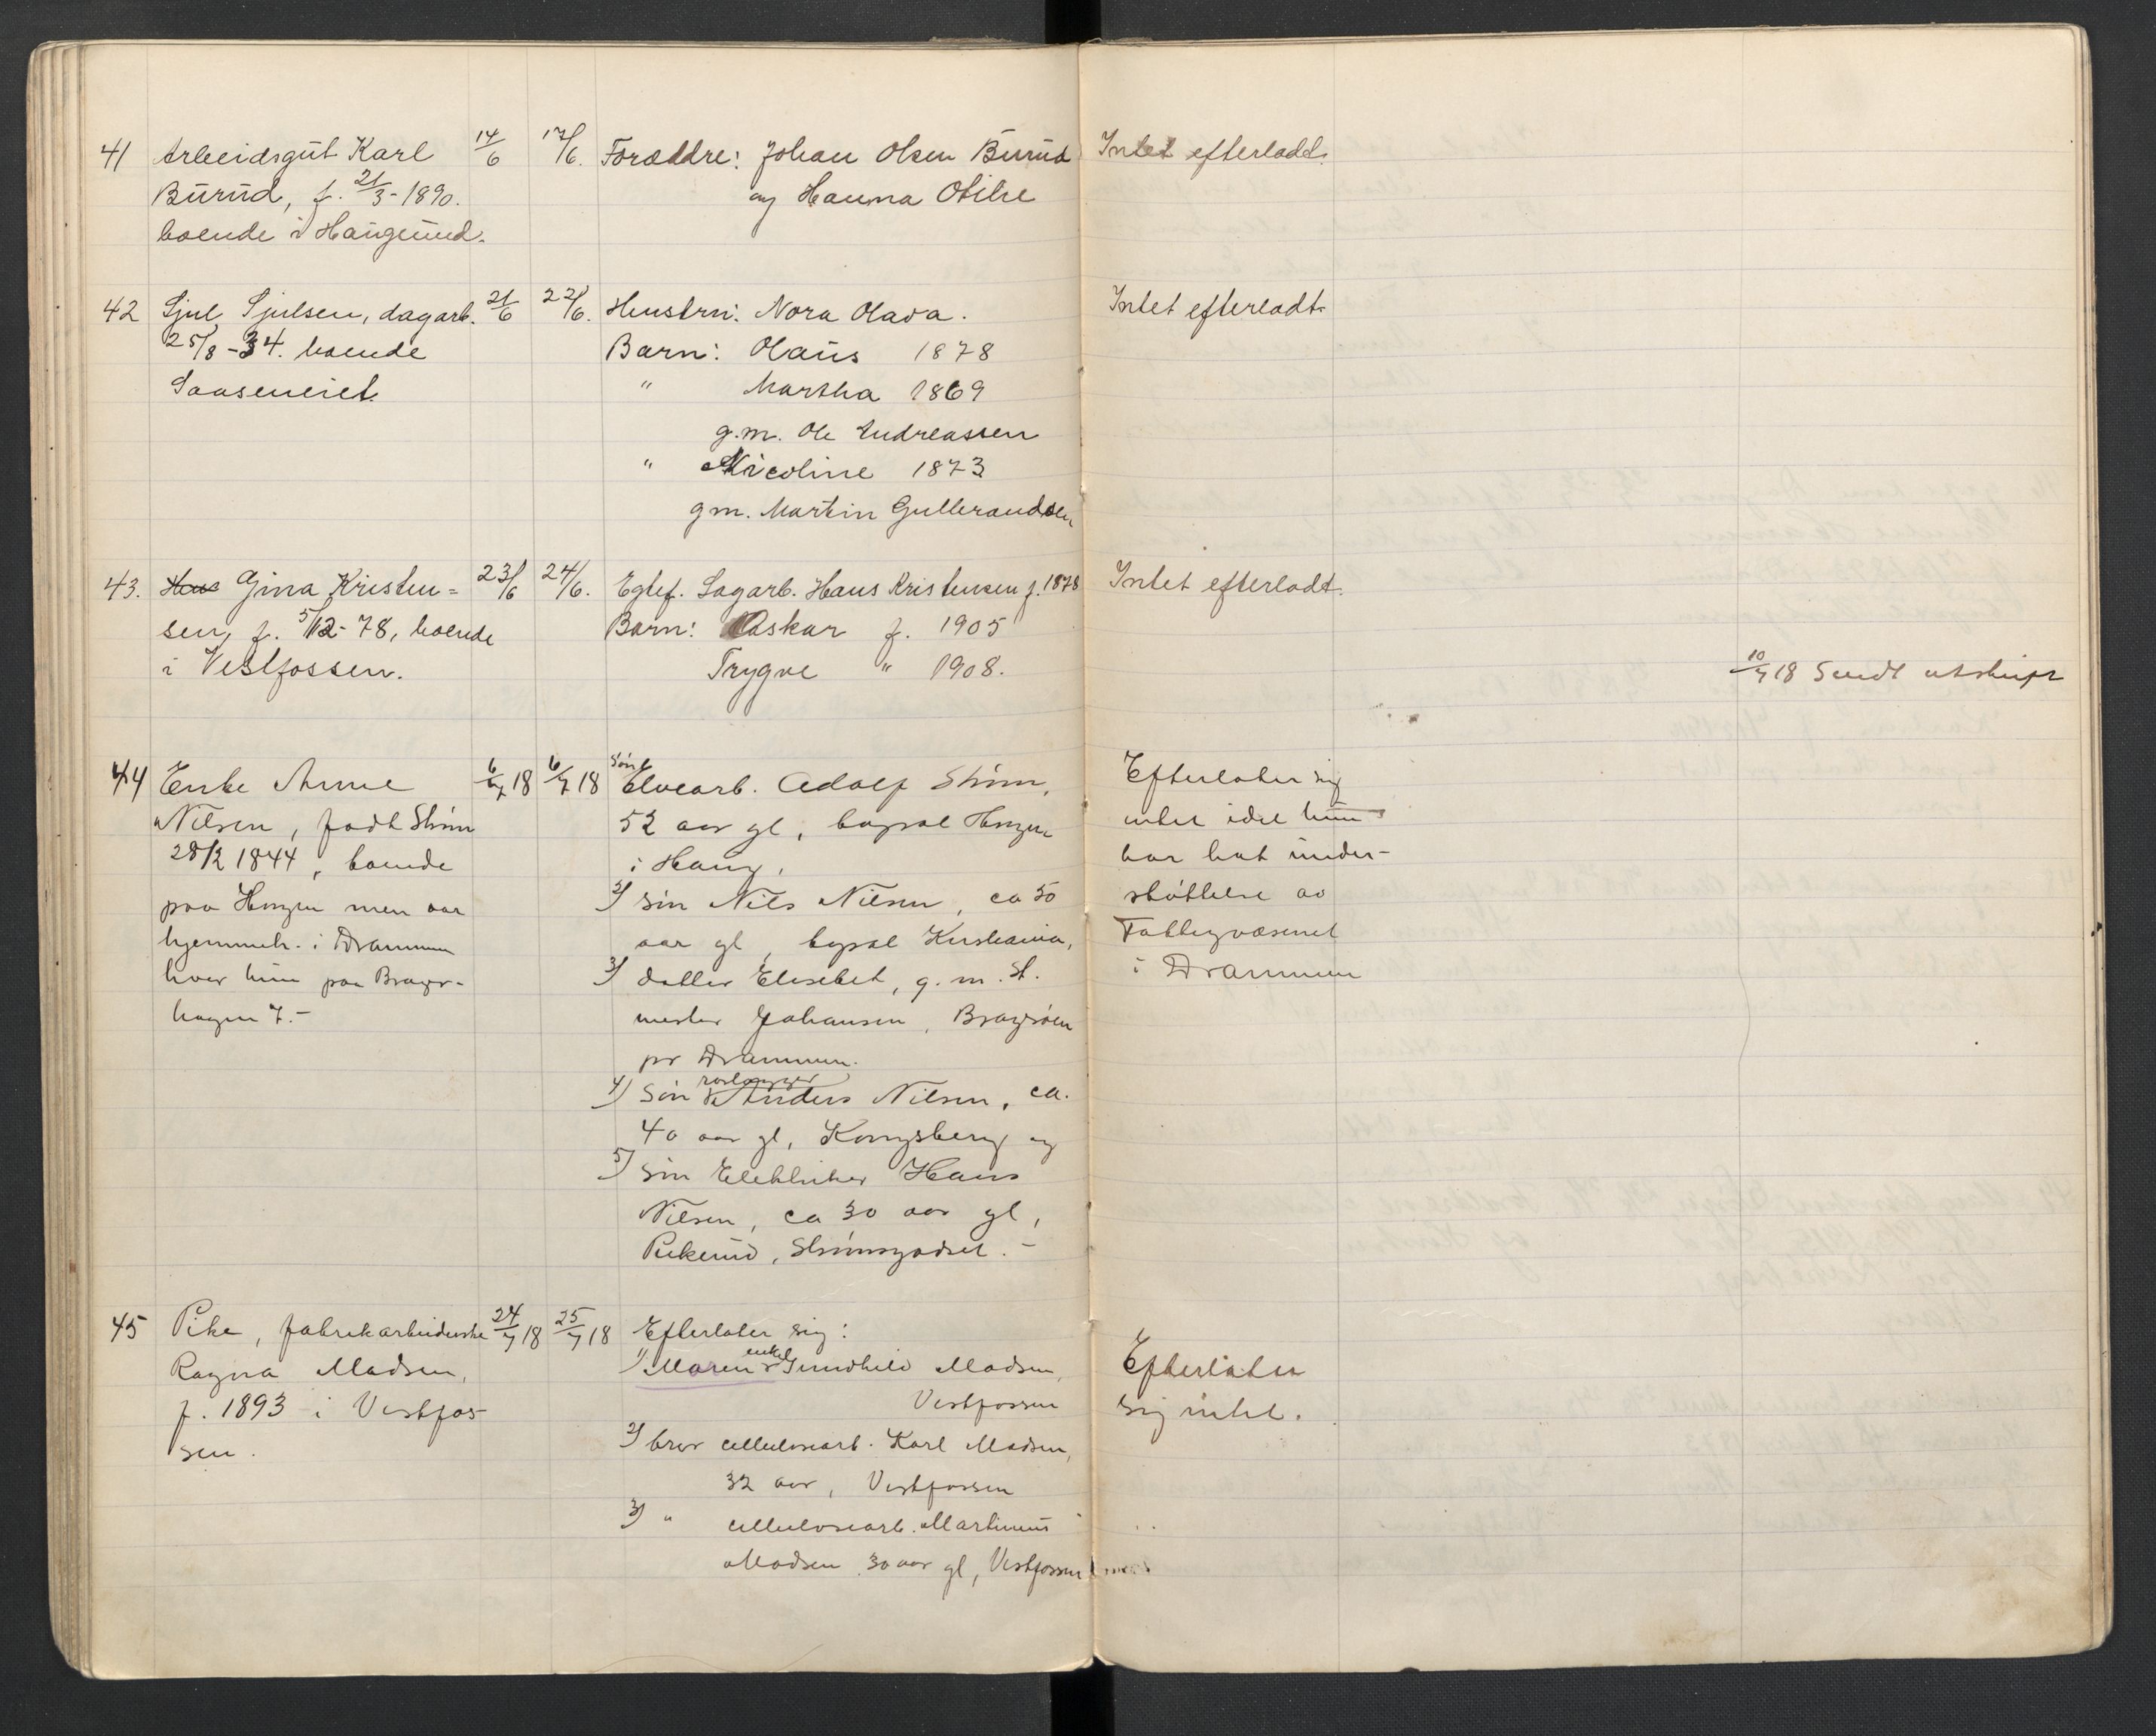 41 Arbeidsgut Karl 14/6 17/6. Forældre: Johan Olsen Burud Intet efterladt.
Burud, f. 21/3-1890. og Hanna Otilie
boende i Haugsund.
42 Sjul Sjulsen, dagarb. 21/6 22/6. Hustru: Nora Olava. Intet efterladt.
25/8-34. boende Barn: Olaus 1878
" Martha 1869
g.m. Ole Andreassen
" Nicoline 1873
gm. Martin Gulbrandsen
43. Gina Kristen= 23/6 24/6. Egtef. Sagarb. Hans Kristensen f. 1878 Intet efterladt.
sen, f. 5/12-78, boende Barn: Oskar f. 1905
i Vestfossen. Trygve " 1908.
10/7 18 Sendt utskrift
44 Enke Anne 6/7 18 6/7 18 Søn Elvearb. Adolf Strøm, Efterlater sig
Nilsen, født Strøm 52 aar gl, bopæl intet idet hun
28/2 1844, boende i Haug. har hat under-
paa men var 2) søn Nils Nilsen, ca 50 støttelse av
hjemmeh. i Drammen aar gl, bopæl Kristiania, Fattigvæsenet
hvor hun paa Brager- 3) datter Elisebet, g. m. st. i Drammen
hagen 7.- mester Johansen, Bragerøen
pr Drammen.
4) Søn Anders Nilsen, ca.
40 aar gl, Kongsberg og
5) søn Elektriker Hans
Nilsen, ca 30 aar gl,
Pukerud, Strømsgodset.-
45 Pike, fabrikarbeiderske 24/7 18 25/7 18 Efterlater sig:
Ragna Madsen, 1) Moren enke Gunhild Madsen, Efterlater
f. 1893 i Vestfos- Vestfossen sig intet.
sen. 2) bror cellulosearb. Karl Madsen,
32 aar, Vestfossen
3) " cellulosearb. Martinius
Madsen 30 aar gl, Vestfossen